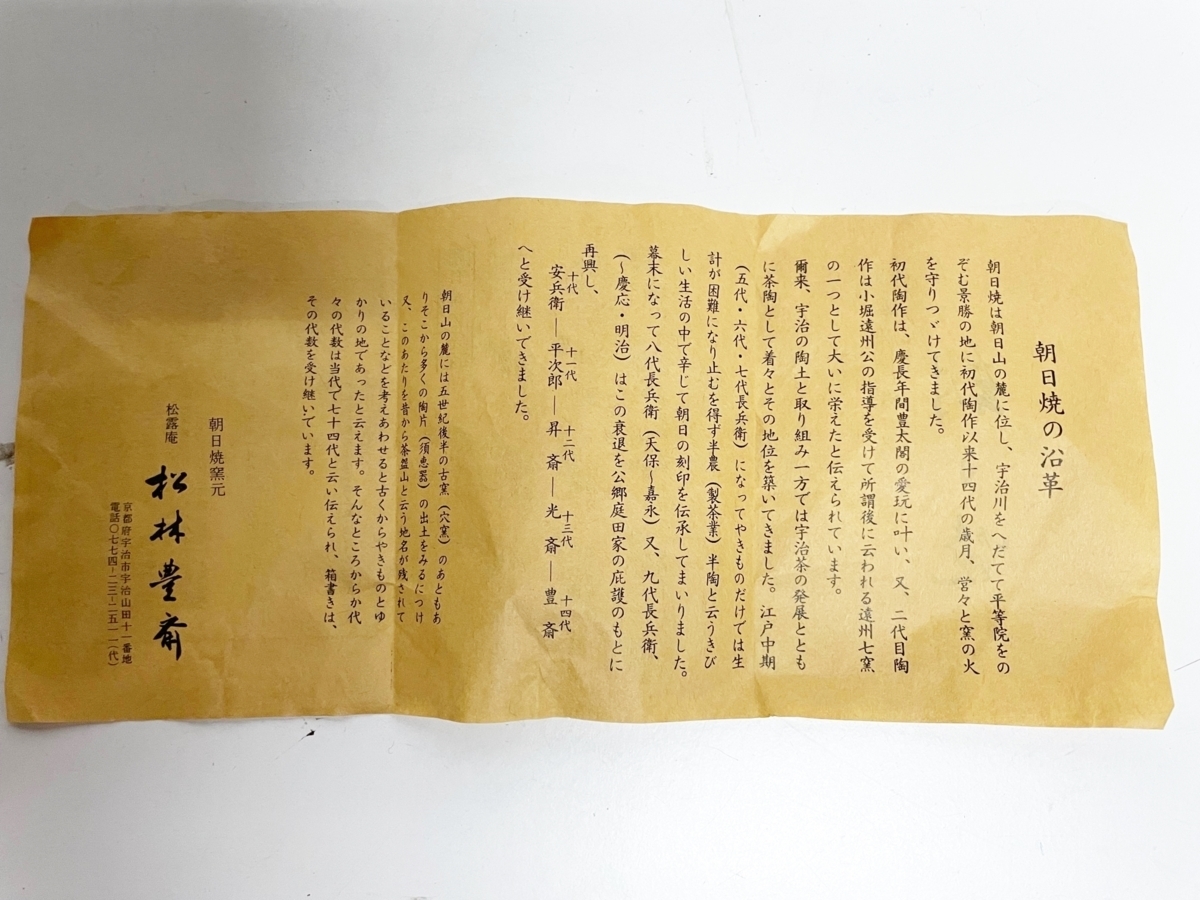 朝日焼の沿革
朝日焼は朝日山の麓に位し、宇治川をへだてて平等院をの
ぞむ景勝の地に初代陶作以来十四代の歳月、営々と窯の火
を守りつゞけてきました。
初代陶作は、慶長年間豊太閤の愛玩に叶い、又、二代目陶
作は小堀遠州公の指導を受けて所謂後に云われる遠州七窯
の一つとして大いに栄えたと伝えられています。
爾来、宇治の陶土と取り組み一方では宇治茶の発展ととも
に茶陶として着々とその地位を築いてきました。江戸中期
(五代・六代・七代長兵衛)になってやきものだけでは生
計が困難になり止むを得ず半農(製茶業)半陶と云うきび
しい生活の中で辛じて朝日の刻印を伝承してまいりました。
幕末になって八代長兵衛(天保〜嘉永)又、九代長兵衛、
(〜慶応・明治)はこの衰退を公郷庭田家の庇護のもとに
再興し、
十代 十一代 十二代 十三代 十四代
安兵衛―平次郎―昇斎―光斎―豊斎
へと受け継いできました。
朝日山の麓には五世紀後半の古窯(穴窯)のあともあ
りそこから多くの陶片(須恵器)の出土をみるにつけ
又、このあたりを昔から茶盌山と云う地名が残されて
いることなどを考えあわせると古くからやきものとゆ
かりの地であったと云えます。そんなところからか代
々の代数は当代で七十四代と云い伝えられ、箱書きは、
その代数を受け継いでいます。
朝日焼窯元
松露庵 松林豊斎
京都府宇治市宇治山田十一番地
電話〇七七四-二三-二五一一(代)